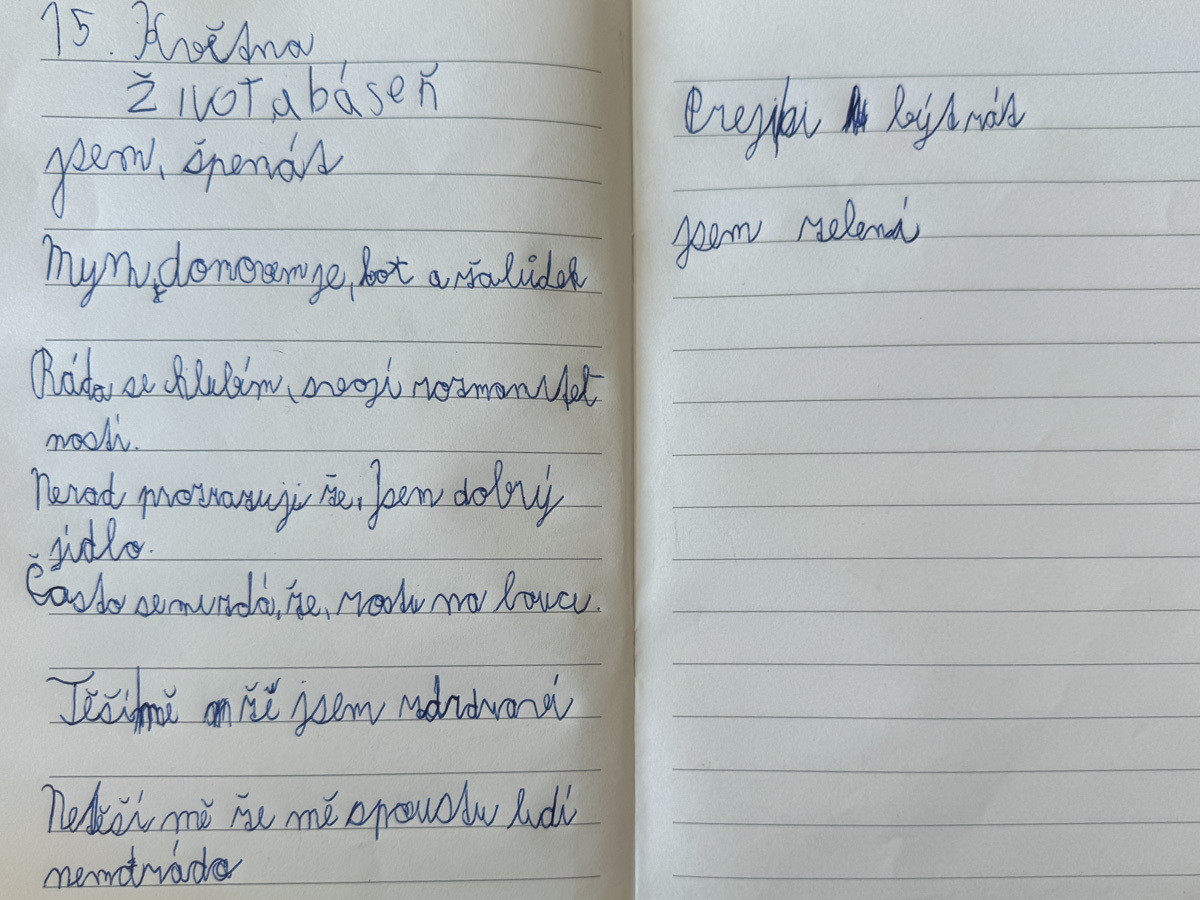 15. Května
Životabáseň
jsem, špenát
Mým, domovem je, bot a žalůdek
Ráda se chlubím, svojí rozmanitet
nosti.
Nerad prozrazuji že, Jsem dobrý
jídlo.
Často semizdá, že, rostu na louce.
Těší mě že jsem zdravá
Netěší mě že mě spoustu lidí
nemá ráda
Přeji být rád
jsem zelená